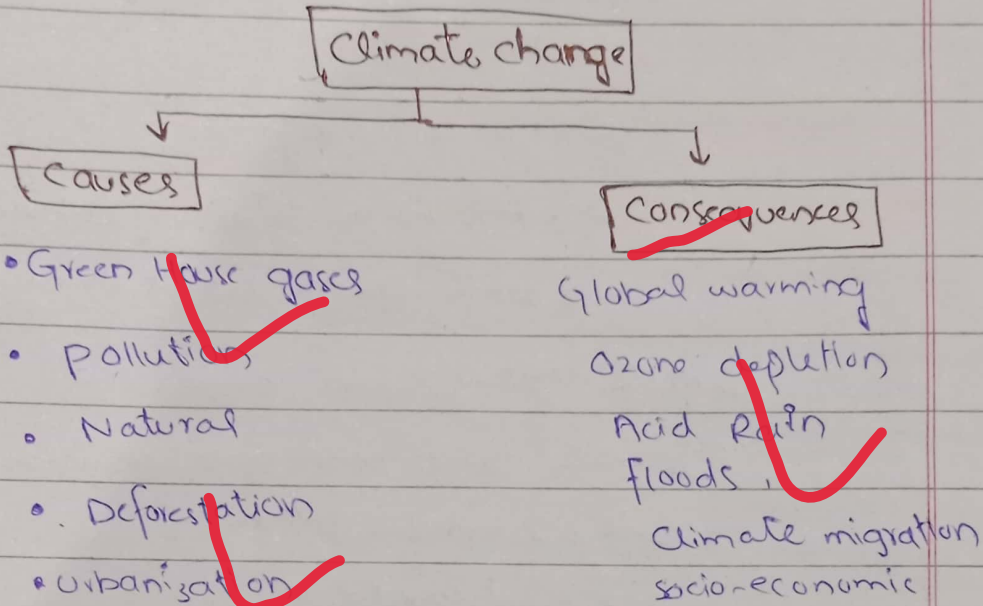 Climate change
Causes
• Green House gases
• Pollution
• Natural
• Deforestation
• Urbanization
Consequences
Global warming
Ozone depletion
Acid Rain
Floods,
Climate migration
socio-economic